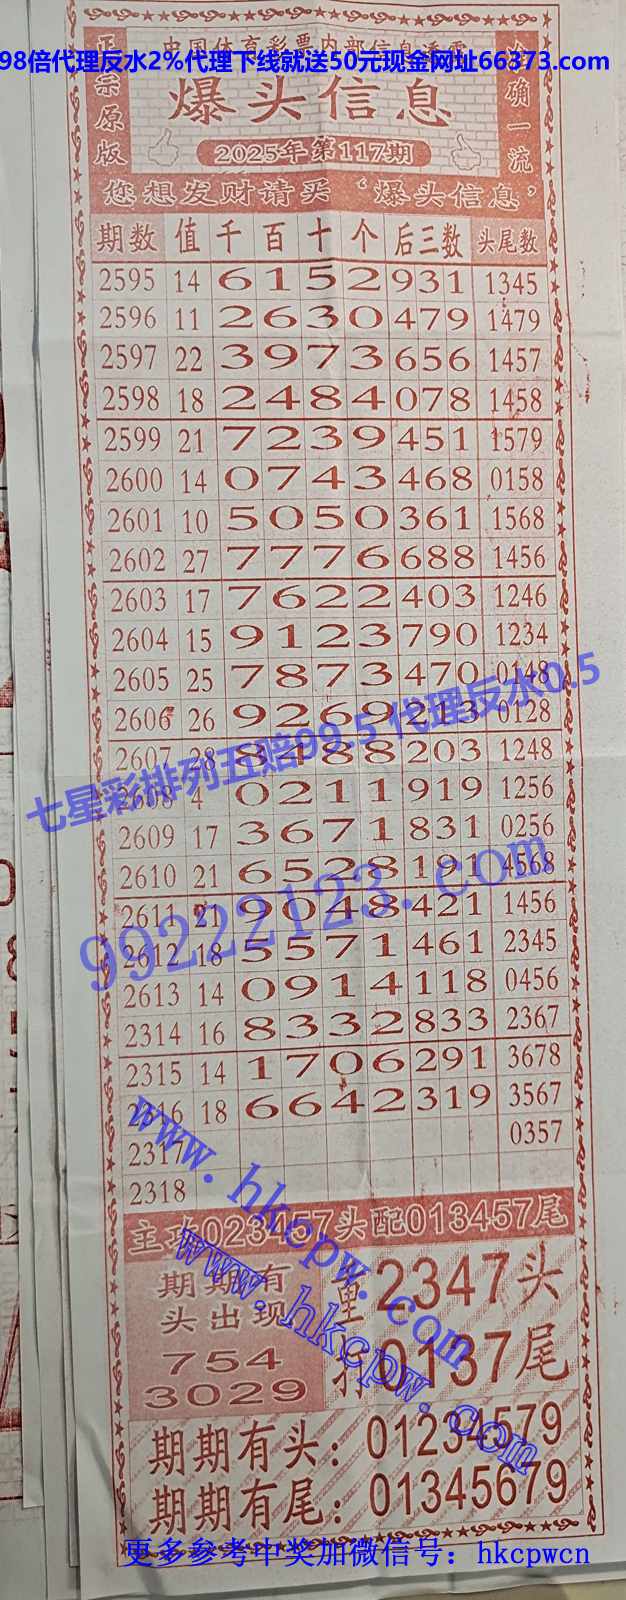 中国体育彩票内部信息透露
98倍代理反水2%代理下线就送50元现金网址66373.com
正宗原版
爆头信息
准确一流
2025年第117期
您想发财请买‘爆头信息’
期数 值 千 百 十 个 后三数 头尾数
2595 14 6 1 5 2 931 1345
2596 11 2 6 3 0 479 1479
2597 22 3 9 7 3 656 1457
2598 18 2 4 8 4 078 1458
2599 21 7 2 3 9 451 1579
2600 14 0 7 4 3 468 0158
2601 10 5 0 5 0 361 1568
2602 27 7 7 7 6 688 1456
2603 17 7 6 2 2 403 1246
2604 15 9 1 2 3 790 1234
2605 25 7 8 7 3 470 0148
2606 26 9 2 6 9 213 0128
七星彩排列五赔99.5 代理反水0.5
2607 28 8 4 8 8 203 1248
2608 4 0 2 1 1 919 1256
2609 17 3 6 7 1 831 0256
2610 21 6 5 2 8 191 4568
99222123.com
2611 21 9 0 4 8 421 1456
2612 18 5 5 7 1 461 2345
2613 14 0 9 1 4 118 0456
2314 16 8 3 3 2 833 2367
2315 14 1 7 0 6 291 3678
2316 18 6 6 4 2 319 3567
2317 0357
2318
www.hkcpw.com
主攻023457头配013457尾
www.hkcpw.com
期期有
头出现
754
3029
重2347头
打0137尾
期期有头：01234579
期期有尾：01345679
更多参考中奖加微信号：hkcpwcn